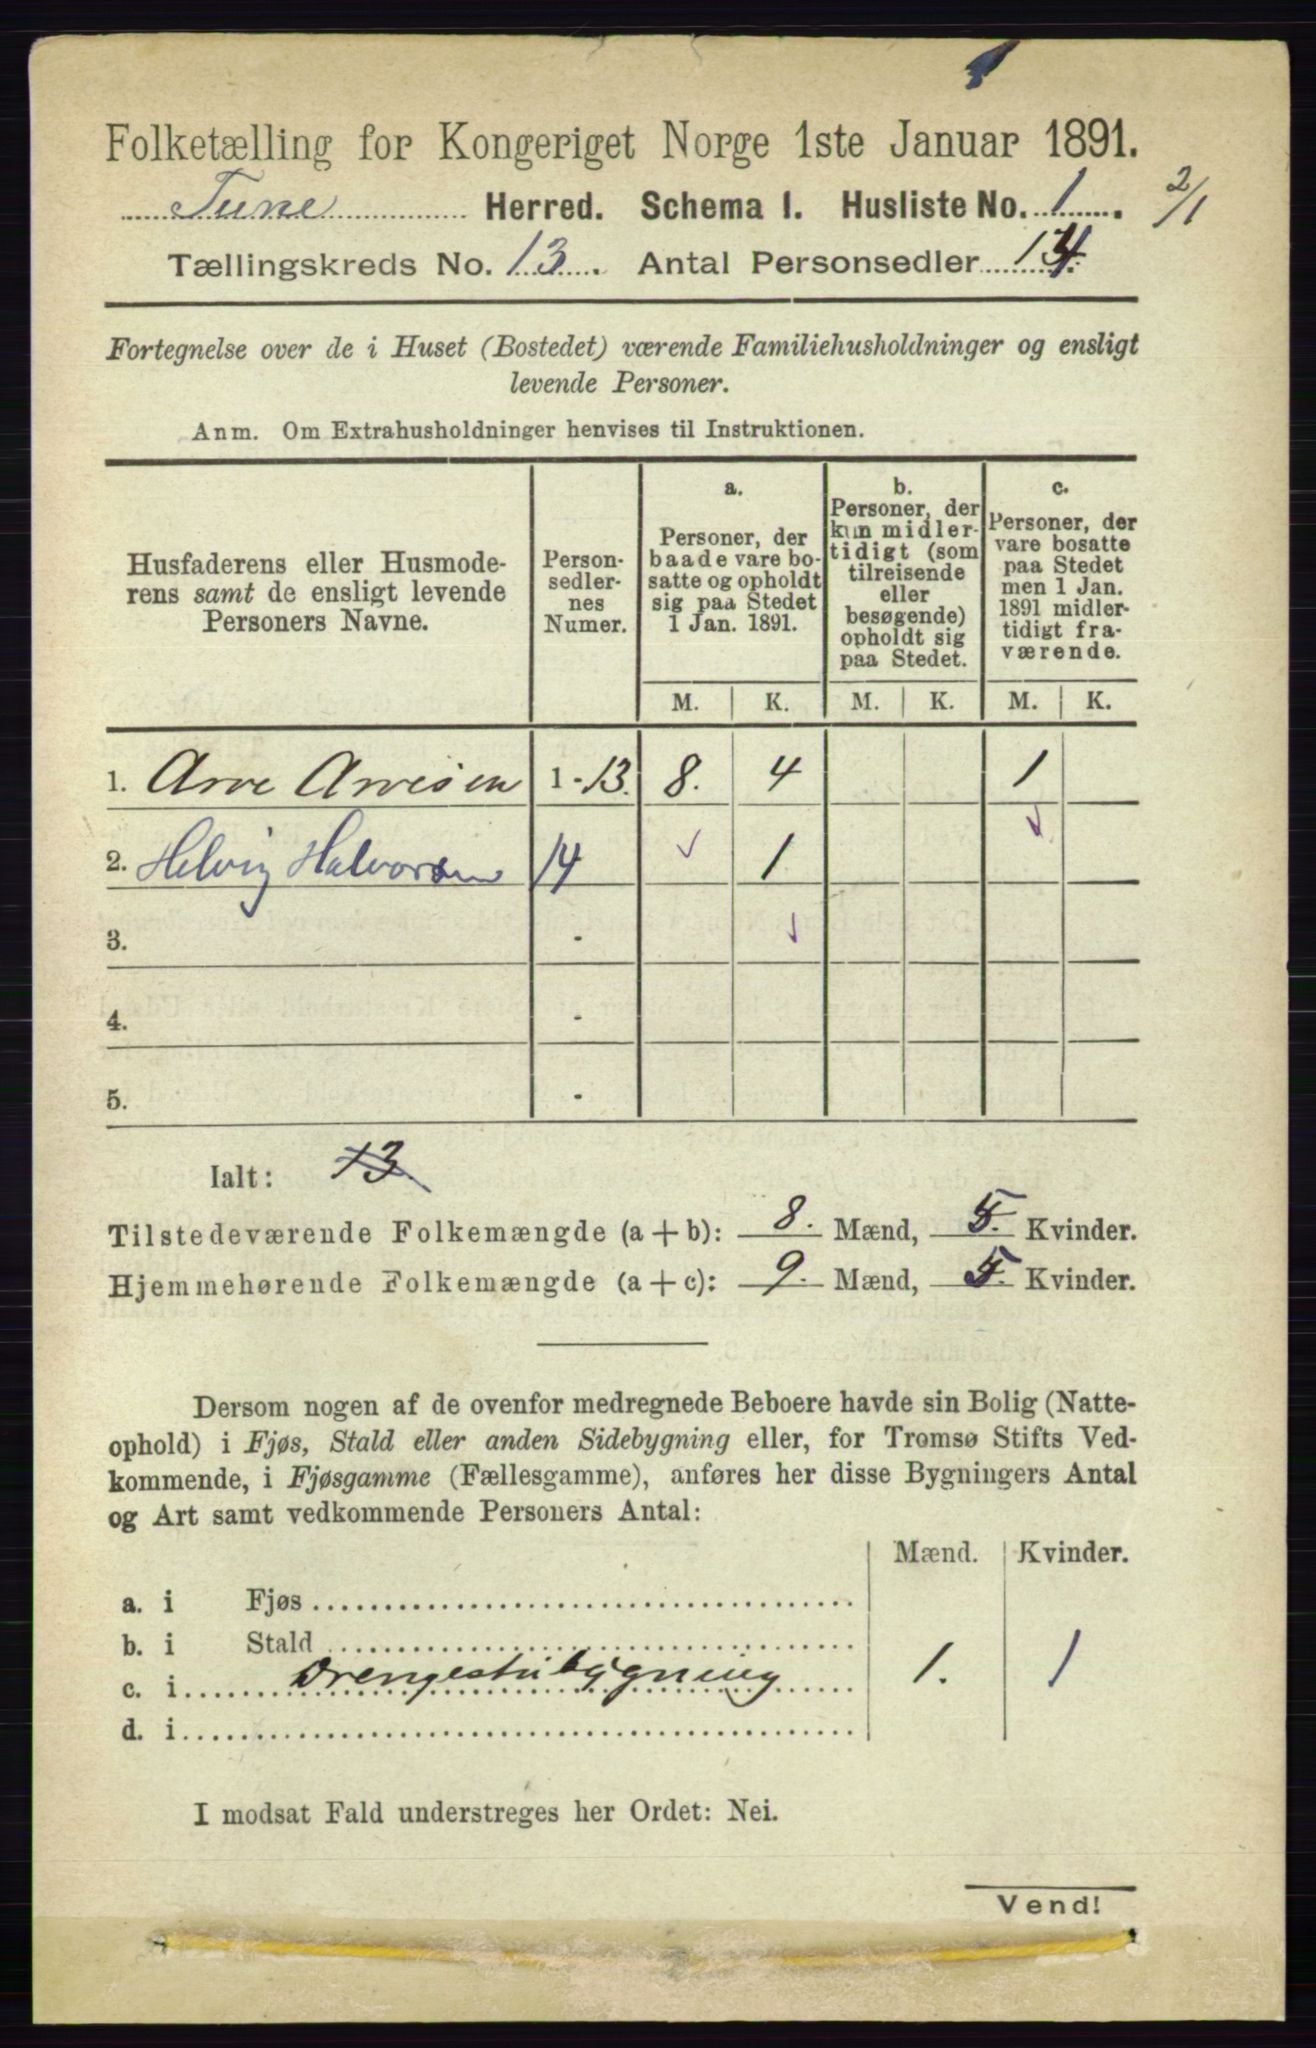 Folketælling for Kongeriget Norge 1ste Januar 1891.
Tune Herred. Schema I. Husliste No. 1. 2/1
Tællingskreds No. 13. Antal Personsedler 14.
Fortegnelse over de i Huset (Bostedet) værende Familiehusholdninger og ensligt
levende Personer.
Anm. Om Extrahusholdninger henvises til Instruktionen.
Husfaderens eller Husmode-
rens samt de ensligt levende
Personers Navne.
Person-
sedler-
nes
Numer.
a.
Personer, der
baade vare bo-
satte og opholdt
sig paa Stedet
1 Jan. 1891.
b.
Personer, der
kun midler-
tidigt (som
tilreisende
eller
besøgende)
opholdt sig
paa Stedet.
c.
Personer, der
vare bosatte
paa Stedet
men 1 Jan.
1891 midler-
tidigt fra-
værende.
M. K. M. K. M. K.
1. Arve Arvesen 1-13. 8. 4 1
2. Helvig Halvorsen 14 1
3. -
4. -
5. -
Ialt: 13
Tilstedeværende Folkemængde (a + b): 8. Mænd, 5. Kvinder.
Hjemmehørende Folkemængde (a + c): 9. Mænd, 5. Kvinder.
Dersom nogen af de ovenfor medregnede Beboere havde sin Bolig (Natte-
ophold) i Fjøs, Stald eller anden Sidebygning eller, for Tromsø Stifts Ved-
kommende, i Fjøsgamme (Fællesgamme), anføres her disse Bygningers Antal
og Art samt vedkommende Personers Antal:
Mænd. Kvinder.
a. i Fjøs
b. i Stald
c. i Drengestubygning 1. 1
d. i
I modsat Fald understreges her Ordet: Nei.
Vend!